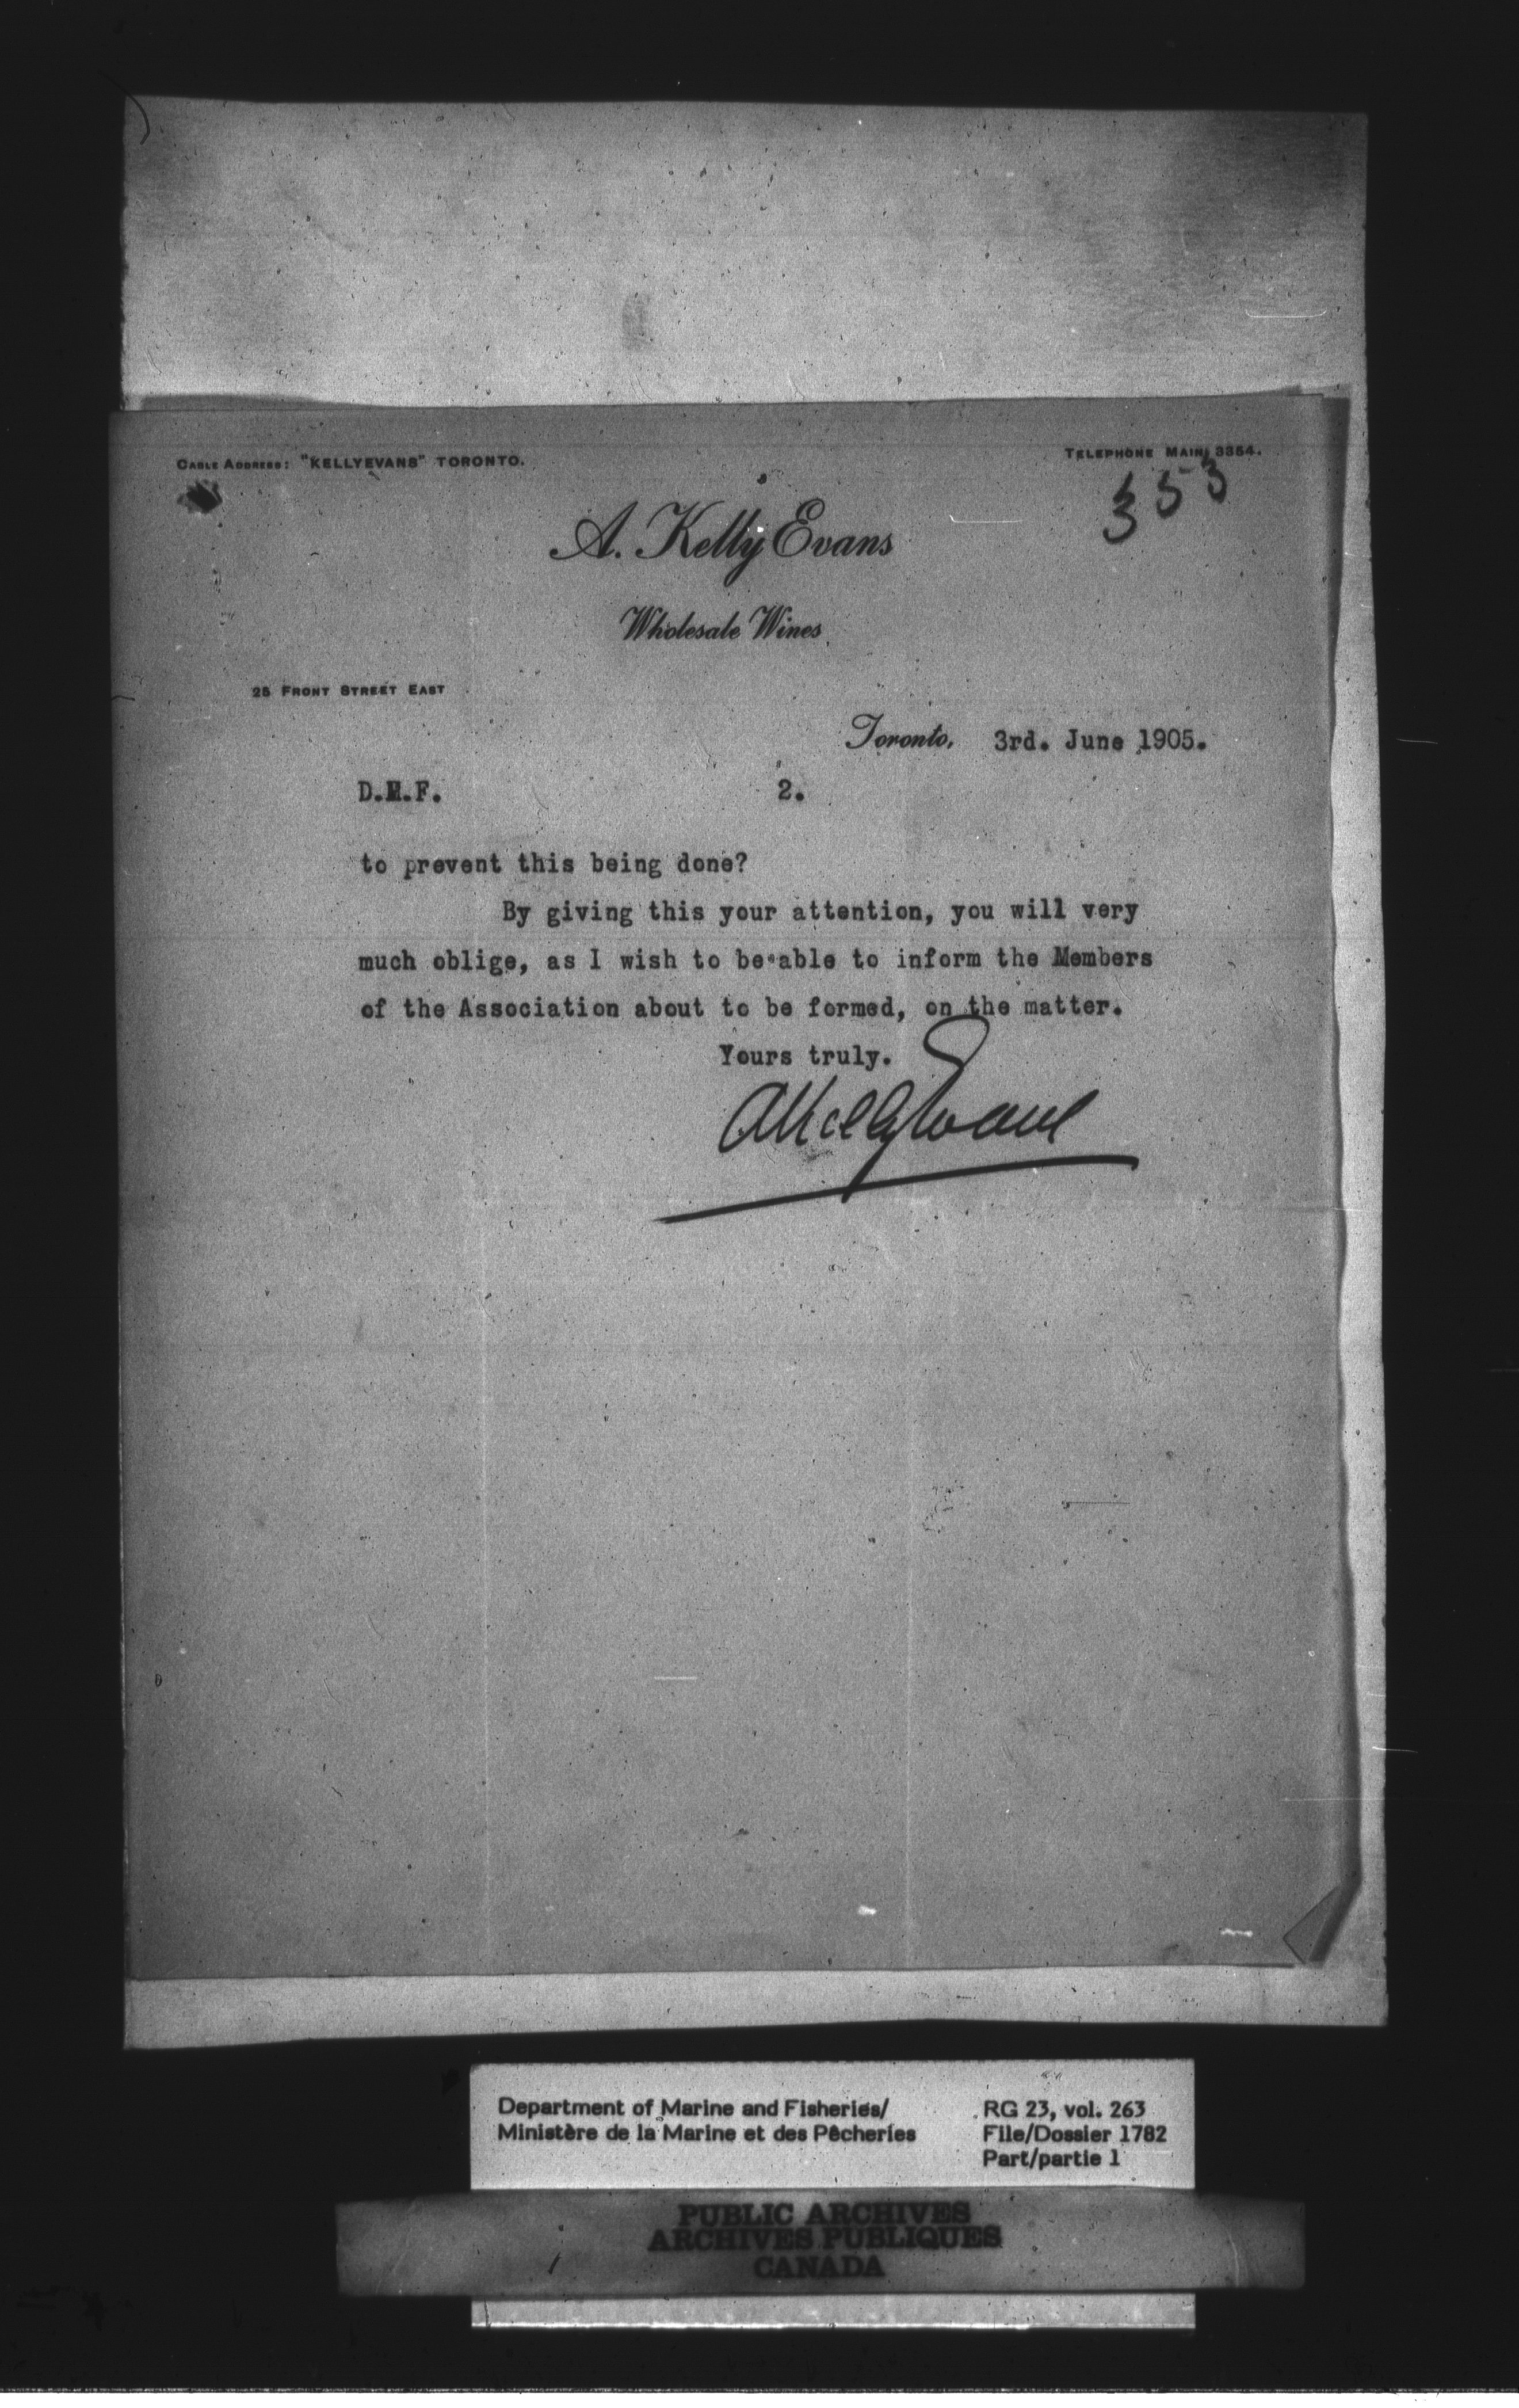 CABLE ADDRESS: "KELLYEVANS" TORONTO.
TELEPHONE MAIN 3354.
353
A. Kelly Evans
Wholesale Wines
25 FRONT STREET EAST
Toronto, 3rd. June 1905.
D.M.F. 2.
to prevent this being done?
By giving this your attention, you will very
much oblige, as I wish to be able to inform the Members
of the Association about to be formed, on the matter.
Yours truly.
A Kelly Evans
Department of Marine and Fisheries/
Ministère de la Marine et des Pêcheries
RG 23, vol. 263
File/Dossier 1782
Part/partie 1
PUBLIC ARCHIVES
ARCHIVES PUBLIQUES
CANADA